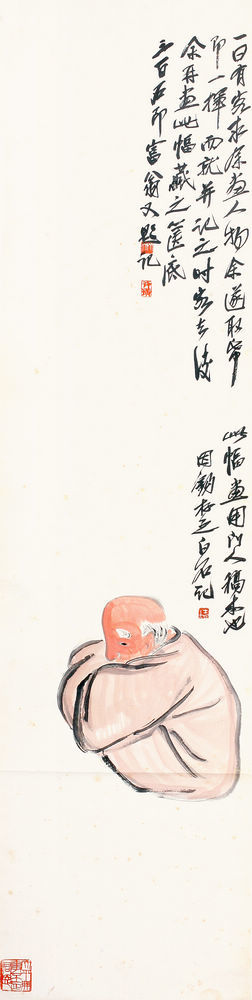 一日有客求余画人物余遂取笔
即一挥而就并记之时客去后
余再画此幅藏之箧底
三百石印富翁又题记
此幅画用门人稿本也
因存之白石记